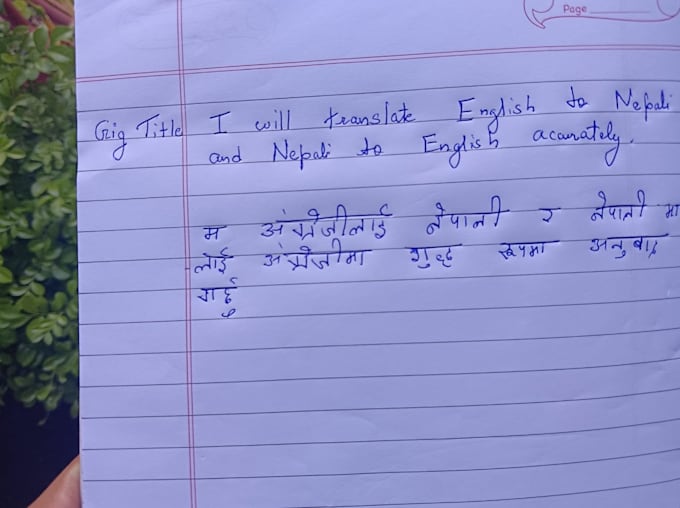 Page
Gig Title I will translate English to Nepali
and Nepali to English acurately.
म अंग्रेजीलाई नेपाली र नेपाली मा
लाई अंग्रेजीमा शुद्ध रूपमा अनुबाद
गर्छु